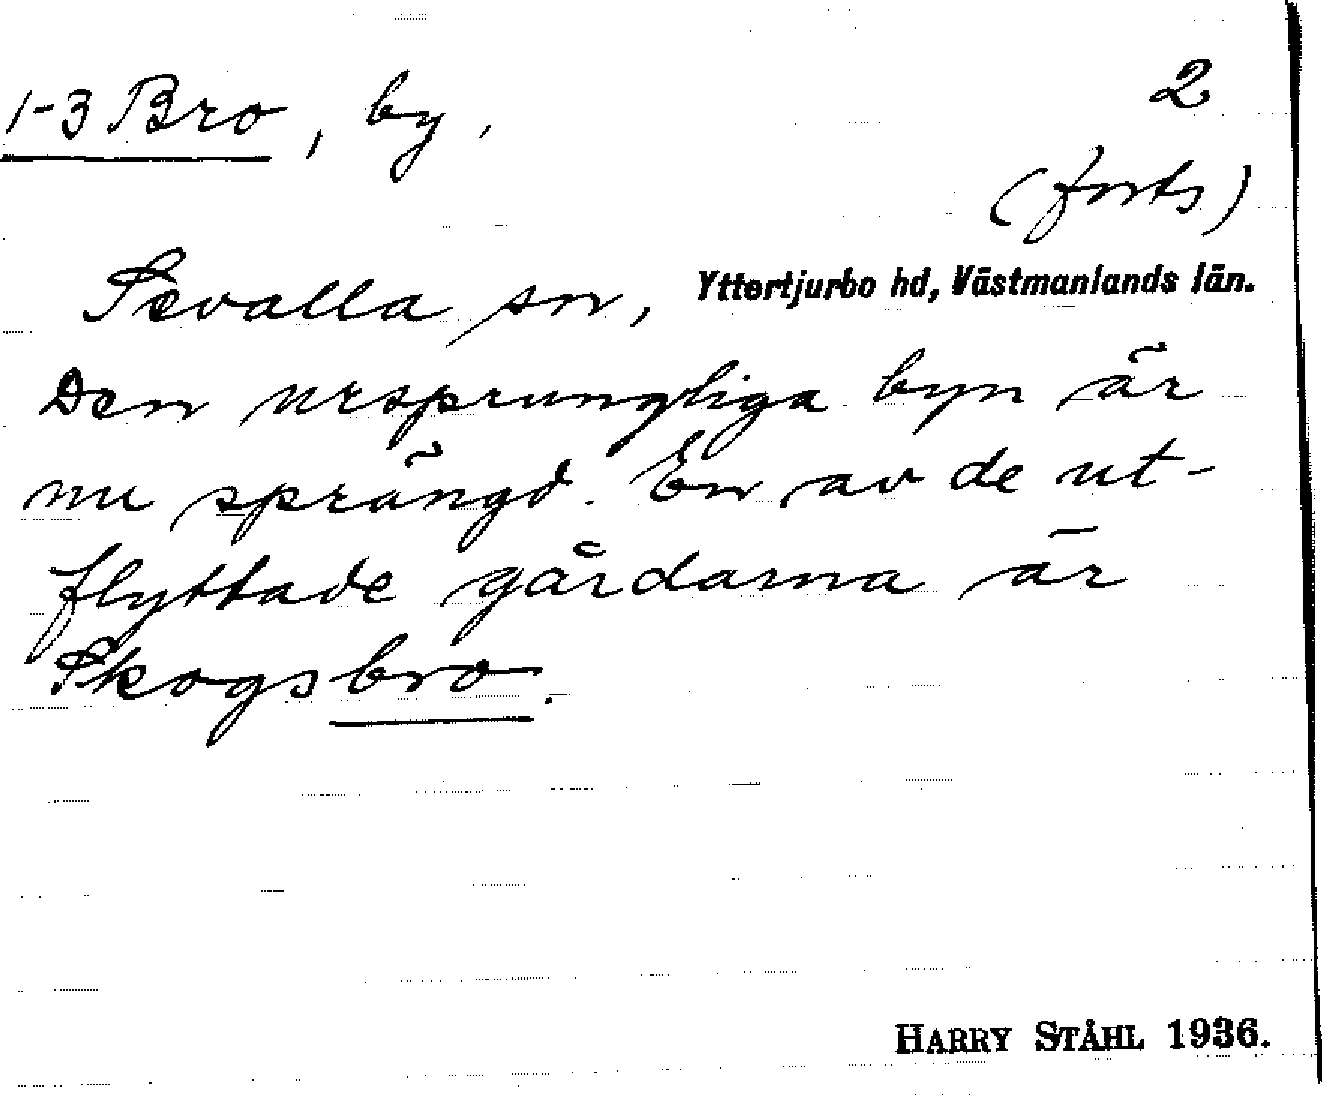 1-3 Bro, by,
2
(forts)
Sevalla sn, Yttertjurbo hd, Västmanlands län.
Den ursprungliga byn är
nu sprängd. En av de ut-
flyttade gårdarna är
Skogsbro.
HARRY STÅHL 1936.